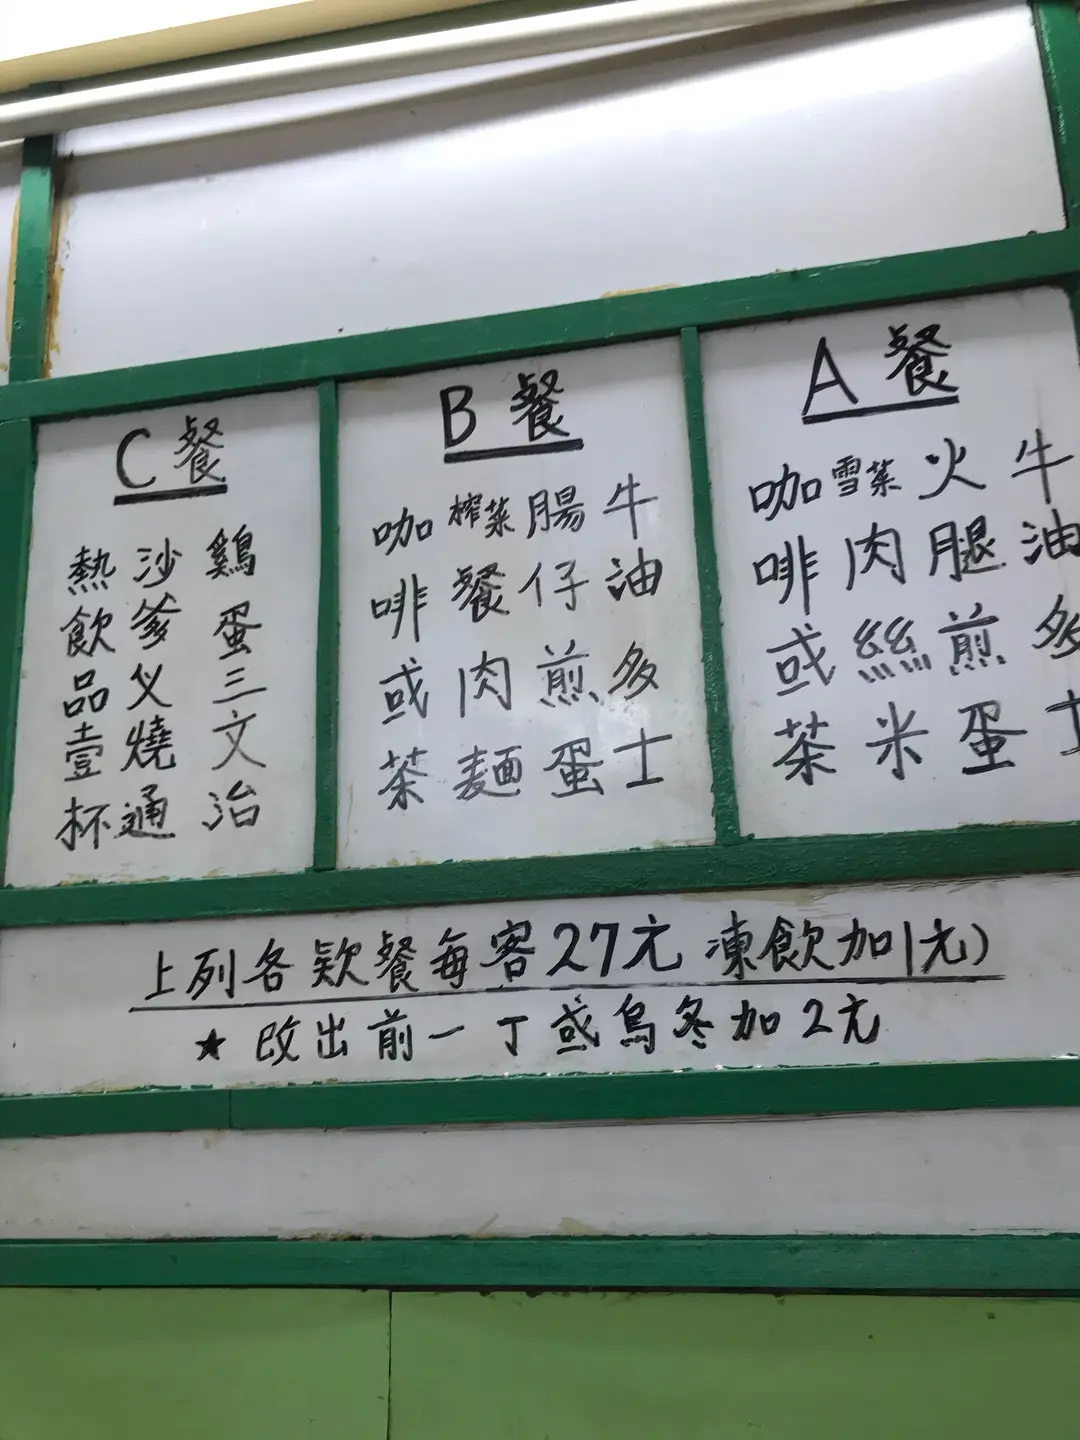 A餐
牛油多士
火腿煎蛋
雪菜肉絲米
咖啡或茶
B餐
牛油多士
腸仔煎蛋
榨菜餐肉麵
咖啡或茶
C餐
鷄蛋三文治
沙爹乂燒通
熱飲品壹杯
上列各欵餐每客27元 凍飲加1元)
★改出前一丁或烏冬加2元